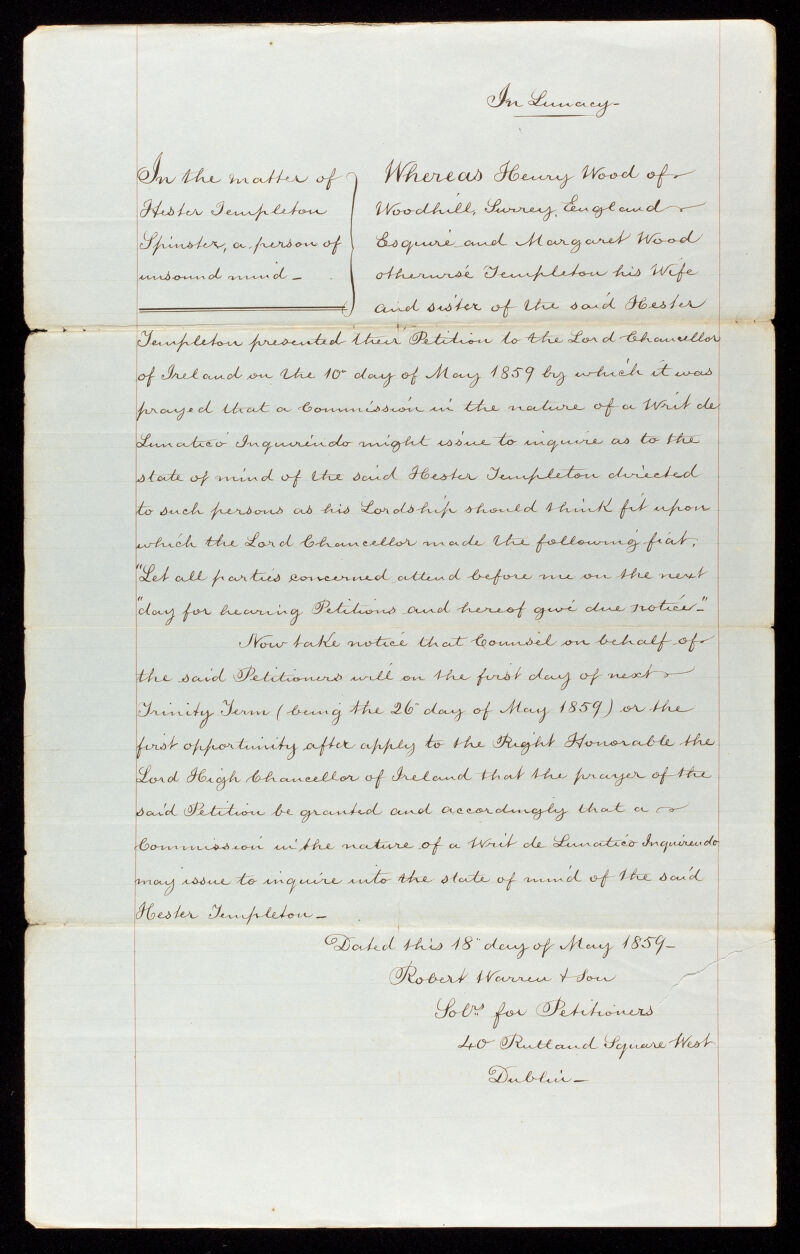 In Lunacy-
In the matter of
Hester Templeton
Spinster, a person of
unsound mind -
Whereas Henry Wood of
Woodhill, Surrey, England
Esquire and Margaret Wood
otherwise Templeton his Wife
and sister of the said Hester
Templeton presented their Petition to the Lord Chancellor
of Ireland on the 10th day of May 1859 by which it was
prayed that a Commission in the nature of a Writ de
Lunatico Inquirendo might issue to inquire as to the
state of mind of the said Hester Templeton directed
to such persons as his Lordship should think fit upon
which the Lord Chancellor made the following fiat,
"Let all parties concerned attend before me on the next
"day for hearing Petitions and hereof give due notice-"
Now take notice that Counsel on behalf of
the said Petitioners will on the first day of next
Trinity Term (being the 26" day of May 1859) or the
first opportunity after apply to the Right Honorable the
Lord High Chancellor of Ireland that the prayer of the
said Petition be granted and accordingly that a
Commission in the nature of a Writ de Lunatico Inquirendo
may issue to inquire into the state of mind of the said
Hester Templeton -
Dated this 18" day of May 1859-
Robert Warren & Son
Solrs for Petitioners
40 Rutland Square West
Dublin -